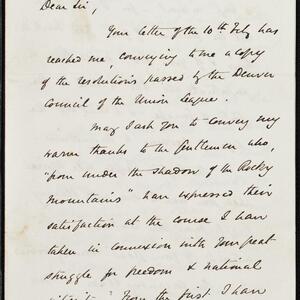 Dear Sir,
Your letter of the 10th July has
reached me, conveying to me a copy
of the resolutions passed by the Denver
Council of the Union League.
May I ask you to convey my
warm thanks to the Gentlemen who,
"from under the shadow of the Rocky
Mountains" have expressed their
satisfaction at the course I have
taken in connexion with your great
struggle for freedom & national
From the first I have